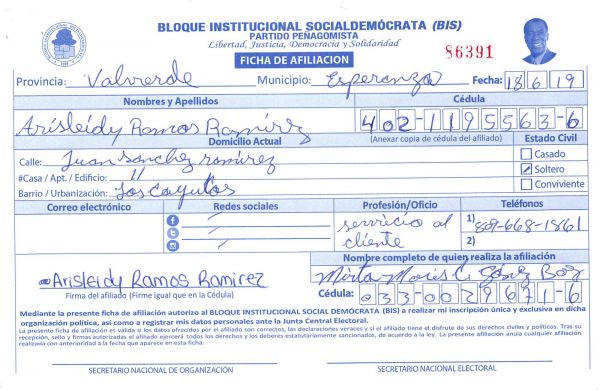 BLOQUE INSTITUCIONAL SOCIALDEMÓCRATA (BIS)
PARTIDO PEÑAGOMISTA
Libertad, Justicia, Democracia y Solidaridad
FICHA DE AFILIACION
86391
Provincia: Valverde Municipio: Esperanza Fecha: 18 6 19
Nombres y Apellidos Cédula
Arisleidy Ramos Ramirez 402-1195563-6
Domicilio Actual (Anexar copia de cédula del afiliado) Estado Civil
Calle: Juan Sanchez ramirez Casado
#Casa / Apt. / Edificio: 11 Soltero
Barrio / Urbanización: Los Cayucos Conviviente
Correo electrónico Redes sociales Profesión/Oficio Teléfonos
servicio al cliente
1) 809-668-1861
2)
Nombre completo de quien realiza la afiliación
Arisleidy Ramos Ramirez Mirta
Firma del afiliado (Firme igual que en la Cédula) Cédula: 033-0029671-6
Mediante la presente ficha de afiliación autorizo al BLOQUE INSTITUCIONAL SOCIAL DEMÓCRATA (BIS) a realizar mi inscripción única y exclusiva en dicha
organización política, así como a registrar mis datos personales ante la Junta Central Electoral.
La presente ficha de afiliación es valida si los datos ofrecidos por el afiliado son correctos, las declaraciones veraces y si el afiliado tiene el disfrute de sus derechos civiles y políticos. Tras su
recepción, sello y firmas autorizadas el afiliado ejercerá todos los derechos y los deberes estatutariamente sancionados, de acuerdo a la ley. La presente afiliación anula cualquier afiliación
realizada con anterioridad a la fecha que aparece en esta ficha.
SECRETARIO NACIONAL DE ORGANIZACIÓN SECRETARIO NACIONAL ELECTORAL